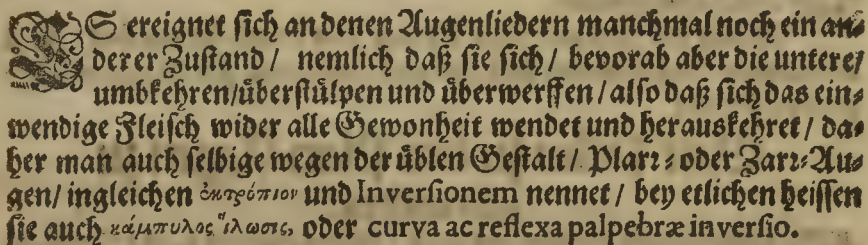 ES ereignet sich an denen Augenliedern manchmal noch ein an-
derer Zustand / nemlich daß sie sich / bevorab aber die untere /
umbkehren / überstülpen und überwerffen / also daß sich das ein-
wendige Fleisch wider alle Gewonheit wendet und herauskehret / da-
her man auch selbige wegen der üblen Gestalt / Plarz- oder Zarz-Au-
gen / ingleichen ἐκτρόπιον und Inversionem nennet / bey etlichen heissen
sie auch κάμπυλος ἴλωσις, oder curva ac reflexa palpebræ inversio.